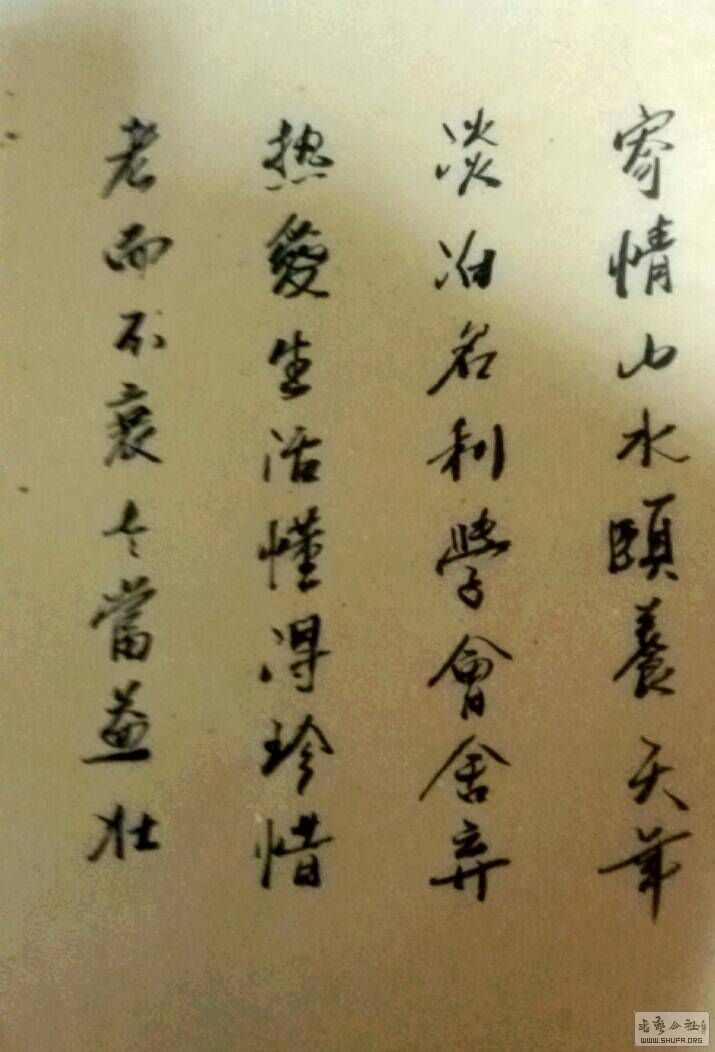 寄情山水頤養天年
淡泊名利學會舍弃
热愛生活懂得珍惜
老而不衰老當益壯
书艺公社
WWW.SHUFA.ORG